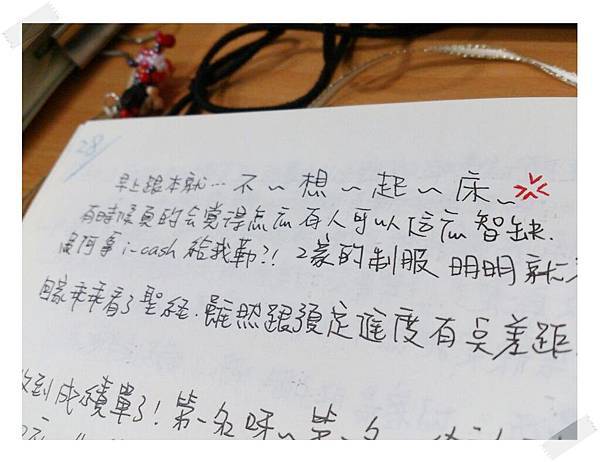 28
早上跟本就…不~想~起~床~
有時候真的会覚得怎広有人可以這広智缺.
阿事 i-cash 給我勒?! 2袋的制服 明明就
回家乖乖看了聖経.雖然跟預定進度有点差距.
收到成績單了!第一名呀~第一名